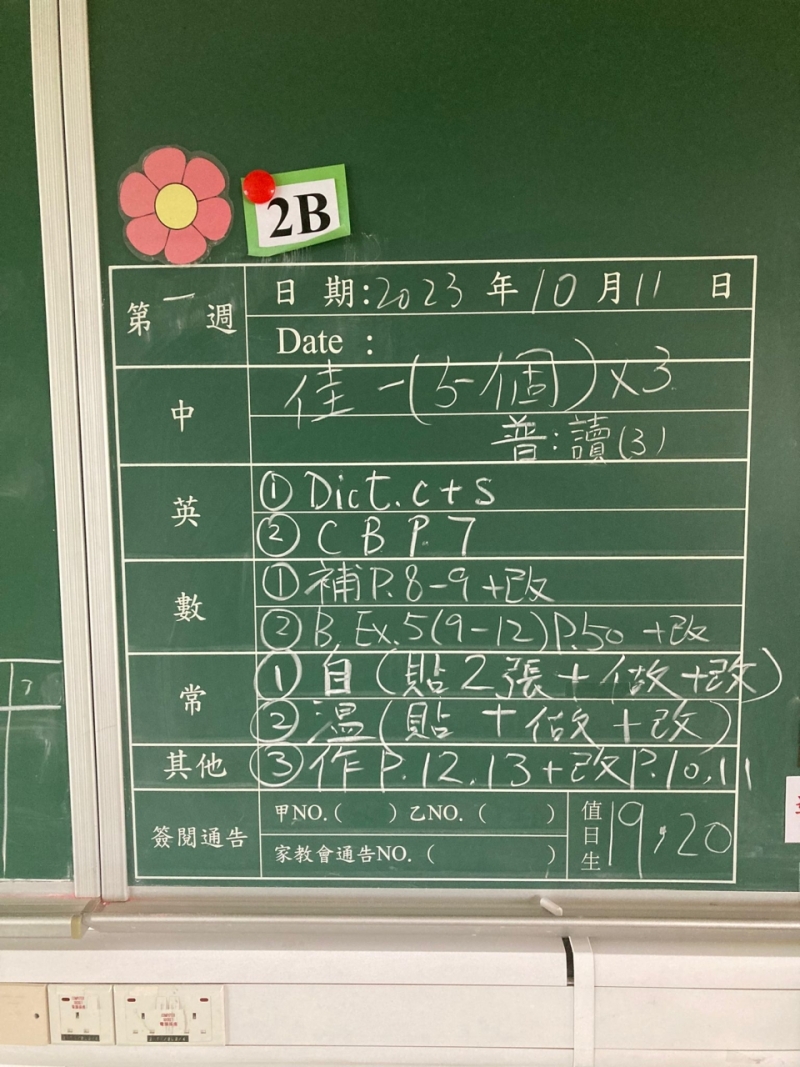 2B
第一週
日期:2023年10月11日
Date :
中
佳一(5個)x3
普:讀(3)
英
① Dict. c+s
② C B P. 7
數
① 補P.8-9+改
② B. Ex.5(9-12)P.50 +改
常
① 自(貼2張+做+改)
② 溫(貼+做+改)
其他
③ 作P.12,13+改P.10,11
簽閱通告
甲NO.( )乙NO.( )
家教會通告NO.( )
值日生
19,20